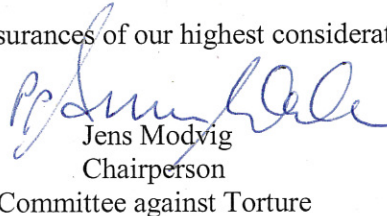 surances of our highest considerat
pp
Jens Modvig
Chairperson
Committee against Torture